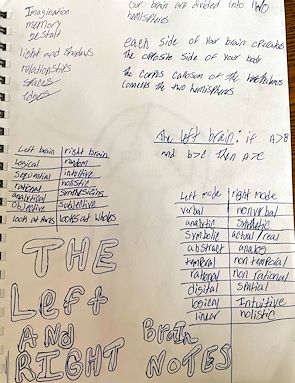 Imagination
memory
gestalt
light and shadows
relationships
spaces
edges
Our brain are divided into two
hemisphers
each side of your brain operates
the opposite side of your body
the corpus callosum of the
connects the two hemisphers
The left brain: if A>B
and b>c then A>C
Left brain | right brain
Logical | random
Sequential | intuitive
rational | holistic
analytical | synthesizing
Objective | Subjective
looks at parts | looks at wholes
Left mode | right mode
verbal | nonverbal
analytic | synthetic
Symbolic | actual/real
abstract | analog
temporal | non temporal
rational | non rational
digital | spatial
logical | Intuitive
linear | holistic
THE
Left
AND
RIGHT
Brain
NOTES